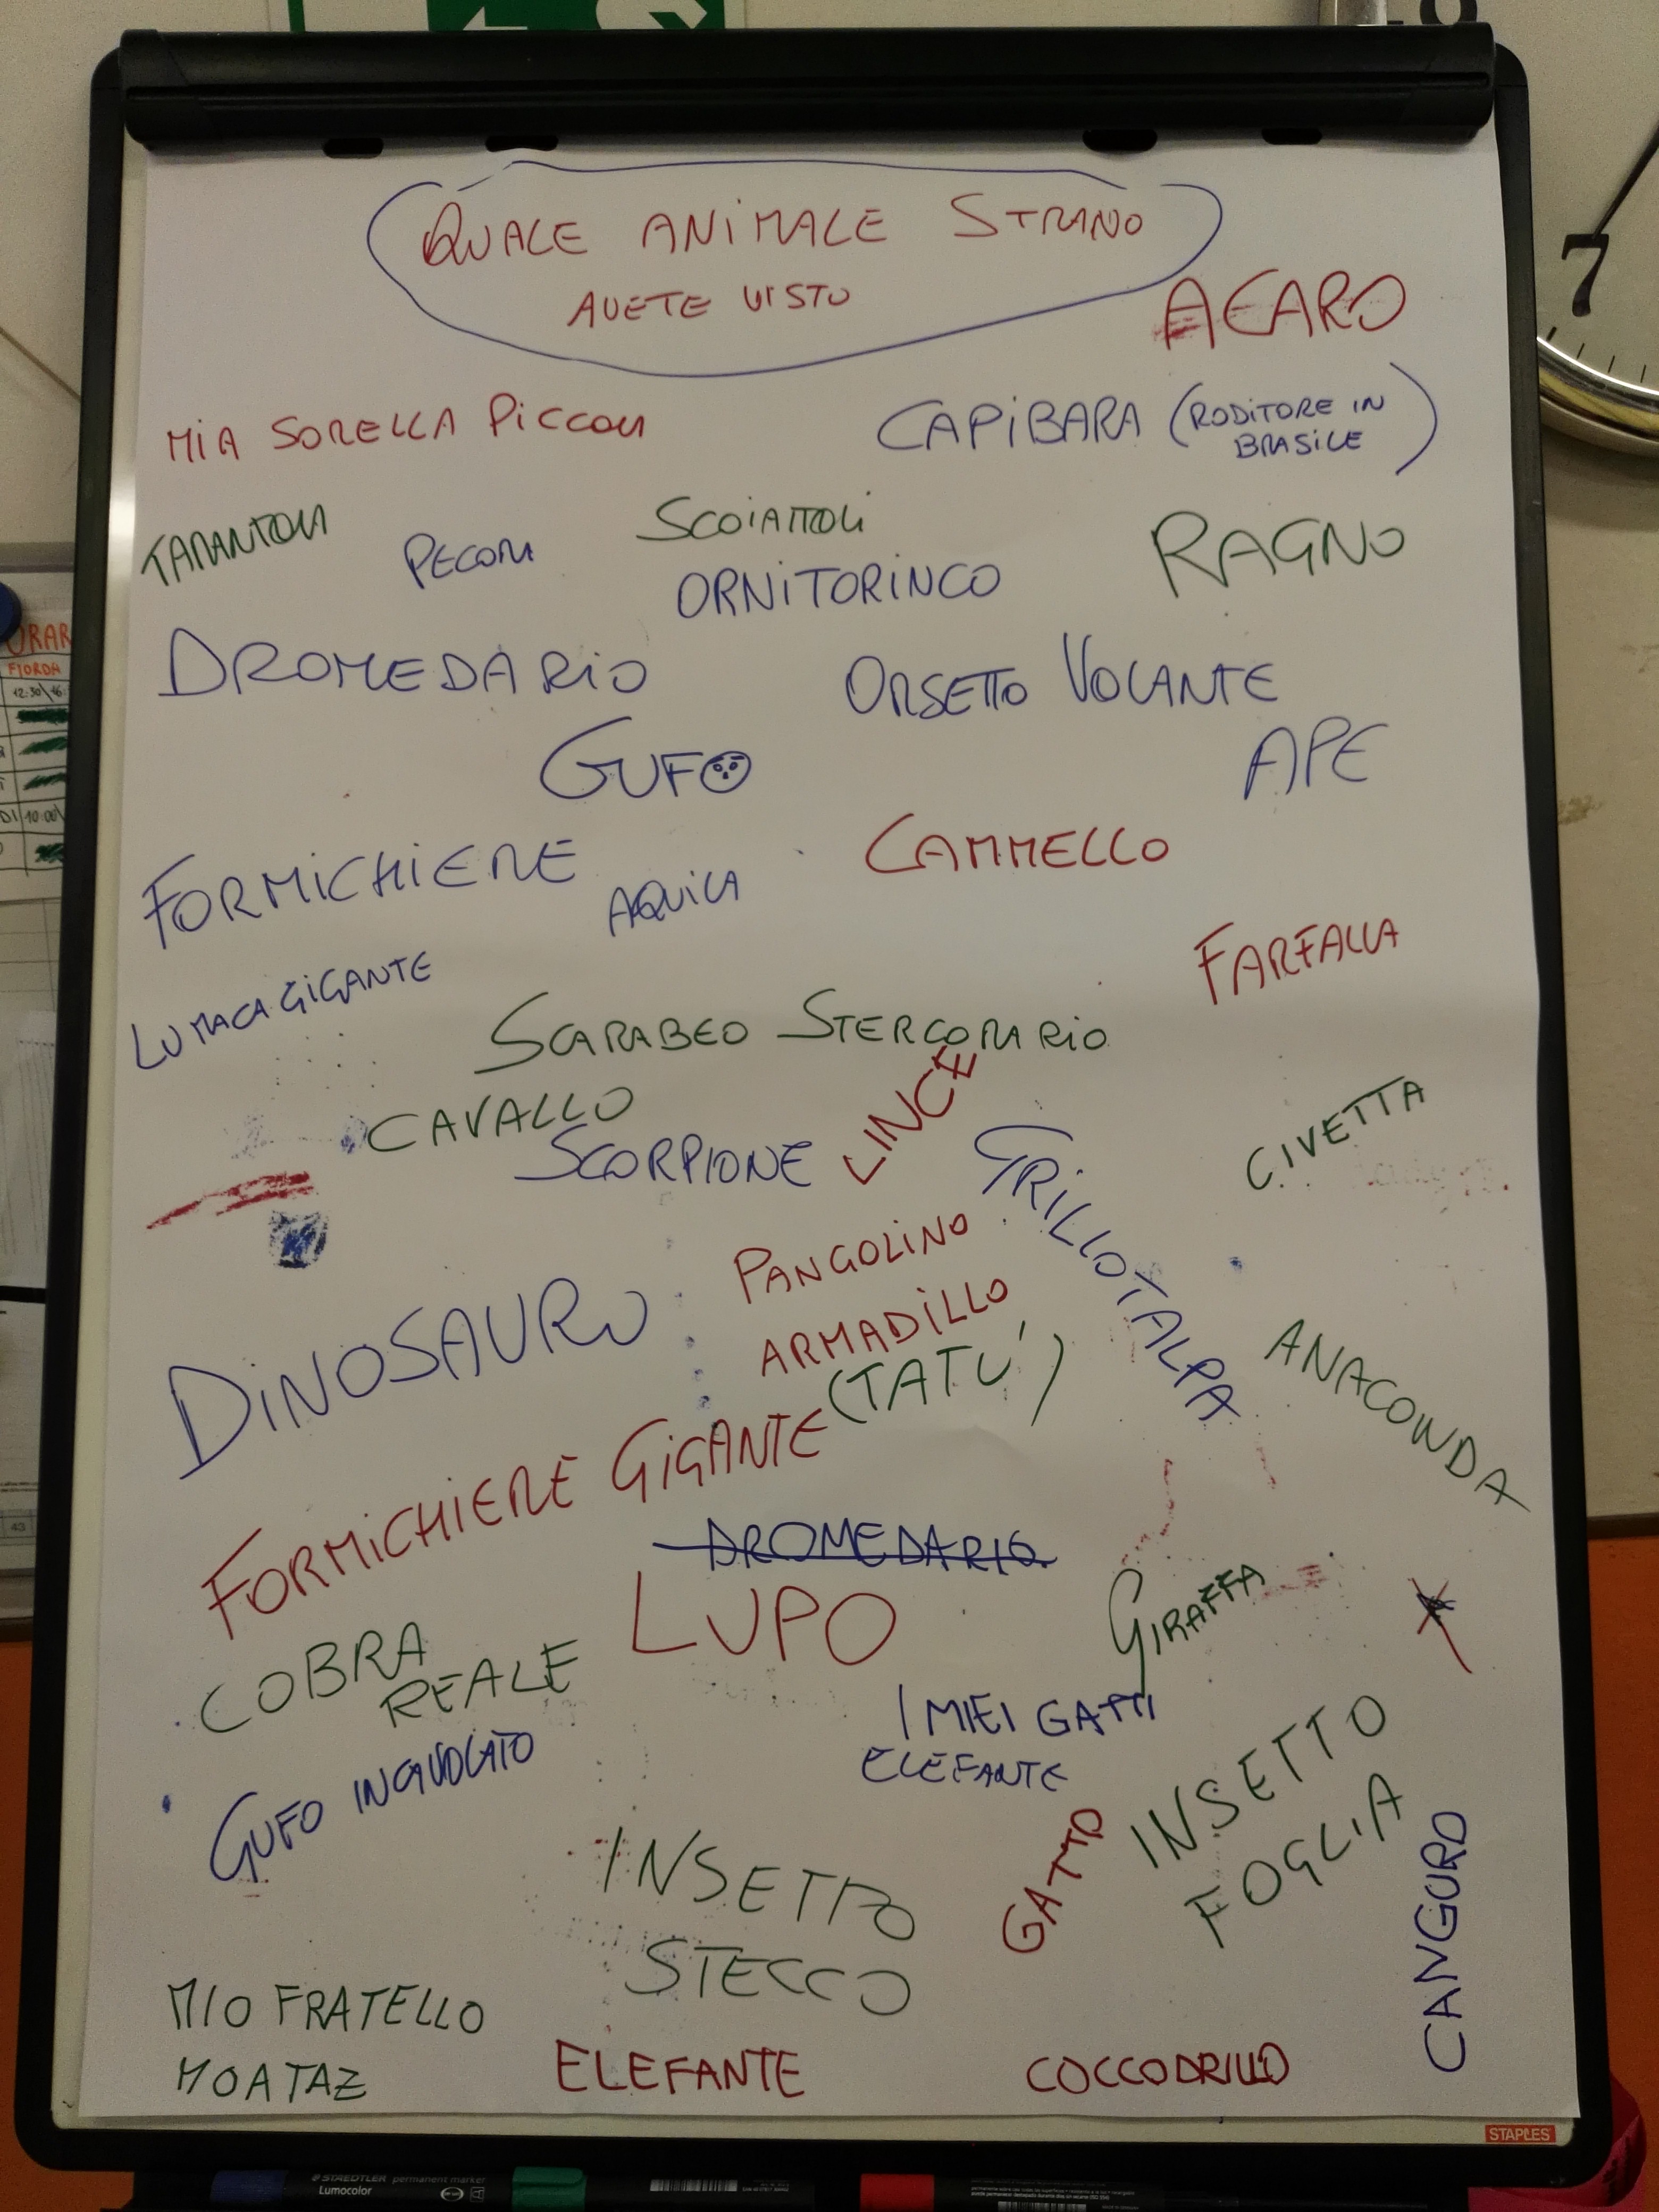 QUALE ANIMALE STRANO
AVETE VISTO
ACARO
MIA SORELLA PICCOLA
CAPIBARA (RODITORE IN
BRASILE)
TARANTOLA
PECORA
SCOIATTOLI
ORNITORINCO
RAGNO
DROMEDARIO
ORSETTO VOLANTE
GUFO
APE
FORMICHIERE
AQUILA
CAMMELLO
FARFALLA
LUMACA GIGANTE
SCARABEO STERCORARIO
CAVALLO
SCORPIONE
LINCE
GRILLOTALPA
CIVETTA
PANGOLINO
ARMADILLO
(TATU')
DINOSAURO
ANACONDA
FORMICHIERE GIGANTE
DROMEDARIO
LUPO
GIRAFFA
COBRA
REALE
I MIEI GATTI
ELEFANTE
GUFO
INSETTO
FOGLIA
GATTO
CANGURO
INSETTO
STECCO
MIO FRATELLO
MOATAZ
ELEFANTE
COCCODRILLO
STAPLES
STAEDTLER permanent marker
Lumocolor
7
ORAR
FIORDA
12:30\16:
10:00\
43